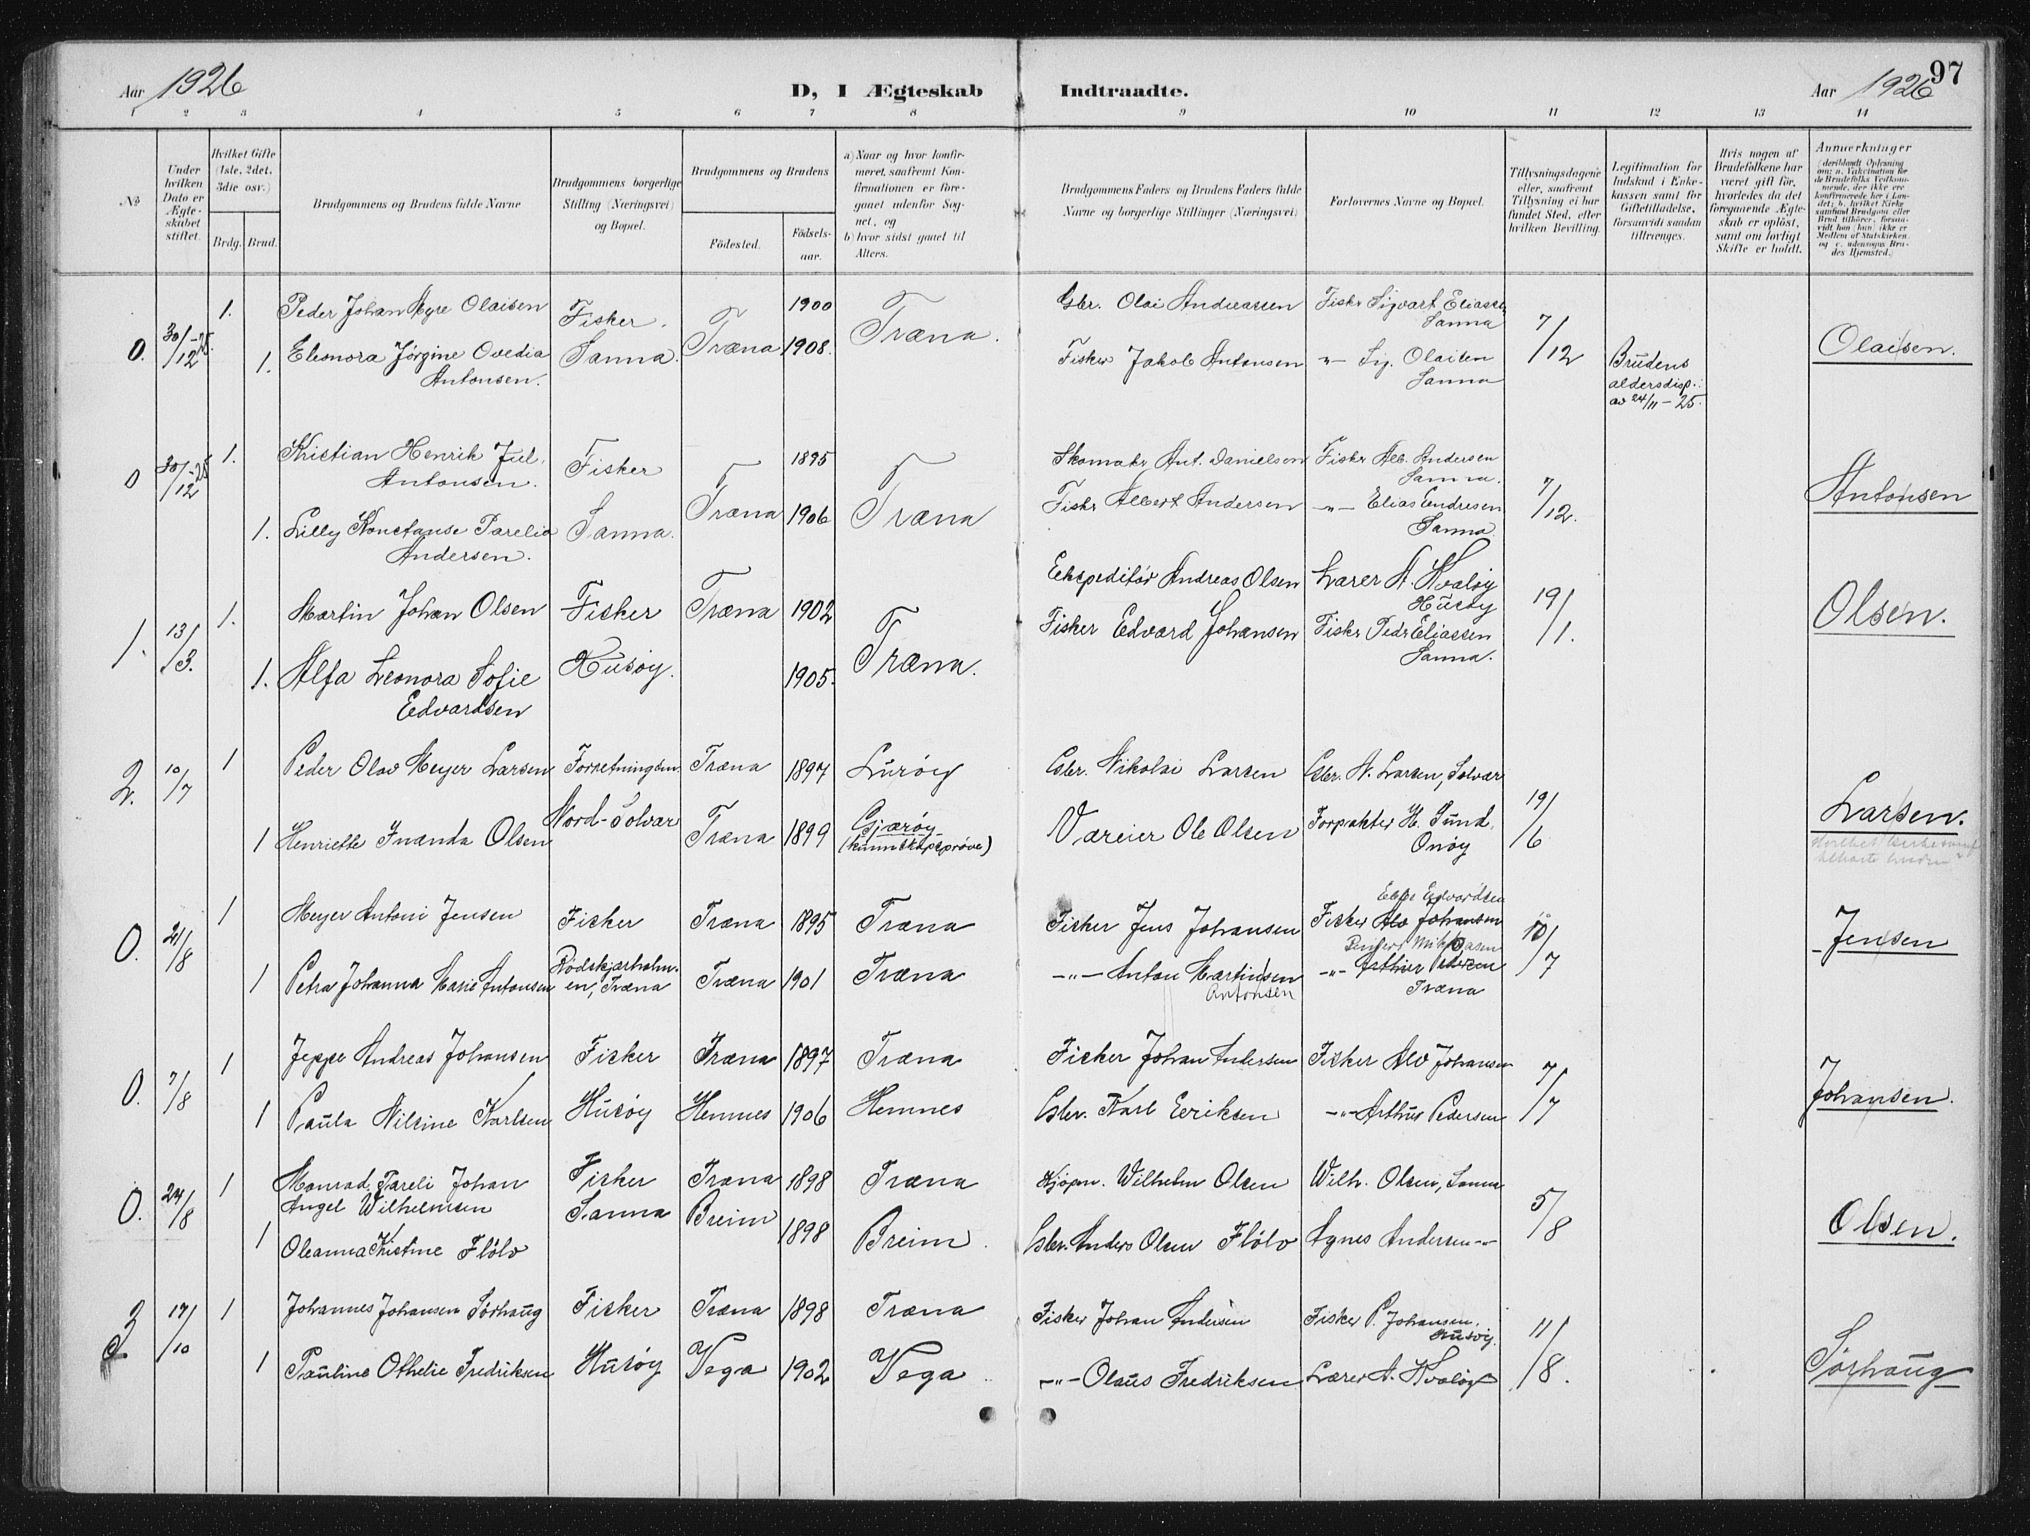 Aar 1926
D, I Ægteskab Indtraadte.
Aar 1926
97
1 2 3 4 5 6 7 8 9 10 11 12 13 14
No
Under hvilken Dato er Ægteskabet stiftet.
Hvilket Gifte (1ste, 2det, 3die osv.)
Brdg. Brud.
Brudgommens og Brudens fulde Navne
Brudgommens borgerlige Stilling (Næringsvei) og Bopæl.
Brudgommens og Brudens
Fødested.
Fødselsaar.
a) Naar og hvor konfirmeret, saafremt Konfirmationen er foregaaet udenfor Sognet, og
b) hvor sidst gaaet til Alters.
Brudgommens Faders og Brudens Faders fulde Navne og borgerlige Stillinger (Næringsvei)
Forlovernes Navne og Bopæl.
Tillysningsdagene eller, saafremt Tillysning ei har fundet Sted, efter hvilken Bevilling.
Legitimation for Indskud i Enkekassen samt for Giftetilladelse, forsaavidt saadan tiltrænges.
Hvis nogen af Brudefolkene har været gift før, hvorledes da det foregaaende Ægteskab er opløst, samt om lovligt Skifte er holdt.
Anmærkninger
(deriblandt Oplysning om: a. Vakcination for de Brudefolks Vedkommende, der ikke ere konfirmerede her i Landet; b. hvilket Kirkesamfund Brudgom eller Brud tilhører, forsaavidt han (hun) ikke er Medlem af Statskirken, og c. udensogns Brudes Hjemsted.)
0. 30/12-25. 1. Peder Johan Myre Olaisen Fisker. Træna 1900 Træna. Gbr. Olai Andreassen Fiskr Sigvart Eliassen Sanna 7/12 Olaisen.
1. Eleonora Jörgine Ovedia Antonsen. Sanna. 1908. Fisker Jakob Antonsen -"- Sig. Olaisen Sanna Brudens aldersdisp. av 24/11-25.
0 30/12-25 1. Kristian Henrik Juel Antonsen. Fisker Træna 1895 Træna Skomakr Ant. Danielsen Fiskr Alb. Andersen Sanna. 7/12. Antonsen
1. Lilly Konstanse Parelia Andersen. Sanna. 1906 Fiskr Albert Andersen -"- Elias Endresen Sanna.
1. 13/3. 1. Martin Johan Olsen Fisker Træna 1902 Træna. Ekspeditør Andreas Olsen Lærer A. Hvaløy Husøy 19/1. Olsen.
1. Alfa Leonora Sofie Edvardsen Husøy. 1905. Fisker Edvard Johansen Fiskr Pedr Eliassen Sanna.
2. 10/7 1 Peder Olav Meyer Larsen Forretningsm. Træna 1897 Lurøy Gbr. Nikolai Larsen Gbr. N. Larsen, Solvær 19/6 Larsen.
1 Henriette Inanda Olsen Nord-Solvær Træna 1899 Gjærøy (kunnskapsprøve) Væreier Ole Olsen Forpakter H. Sund, Onøy
0. 21/8 1 Meyer Antoni Jensen Fisker Træna 1895 Træna Fisker Jens Johansen Fisker Alv Johansen 10/7 Jensen
1 Petra Johanna Marie Antonsen Rödskjærholmen, Træna Træna 1901 Træna -"- Anton Martinsen Antonsen -"- Arthur Pedersen Træna
0. 7/8 1 Jeppe Andreas Johansen Fisker Træna 1897 Træna Fisker Johan Andersen Fisker Alv Johansen 7/7 Johansen.
1 Paula Nilsine Karlsen Husøy Hemnes 1906 Hemnes Gbr. Karl Eeriksen -"- Arthur Pedersen
0. 24/8 1 Monrad Pareli Johan Angel Wilhelmsen Fisker Træna 1898 Træna Kjøpm. Wilhelm Olsen Wilh. Olsen, Sanna 5/8 Olsen.
1 Oleanna Kristine Flölo Sanna Breim 1898 Breim. Gbr. Anders Olsen Flölo Agnes Andersen -"-
3 17/10 1 Johannes Johansen Sörhaug Fisker Træna 1898 Træna Fisker Johan Andersen Fisker P. Johansen, Husøy. 11/8. Sörhaug
1 Pauline Othelie Fredriksen Husøy Vega 1902 Vega -"- Olaus Fredriksen Lærer A. Hvaløy